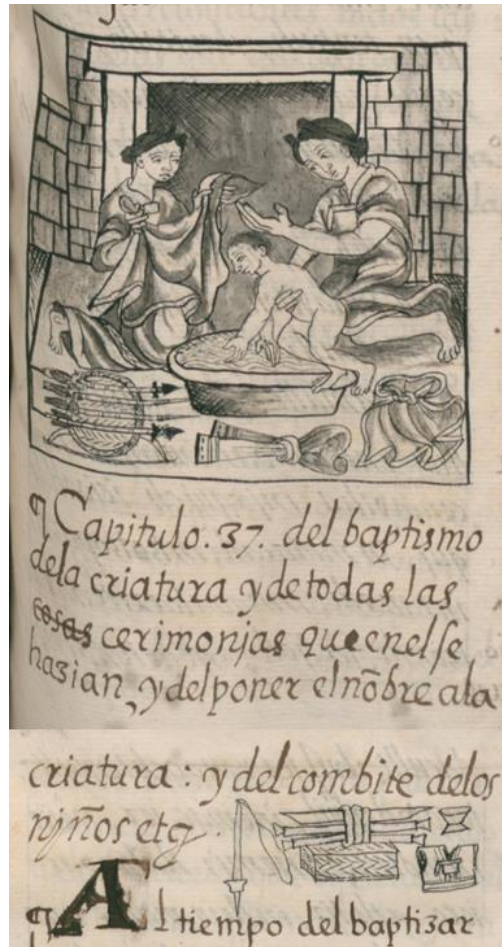 ¶ Capitulo.37. del baptismo
dela criatura y de todas las
cosas cerimonjas que enel se
hazian, y del poner el nõbre ala
criatura: y del combite delos
njños etc̃
¶ Al tiempo del baptizar